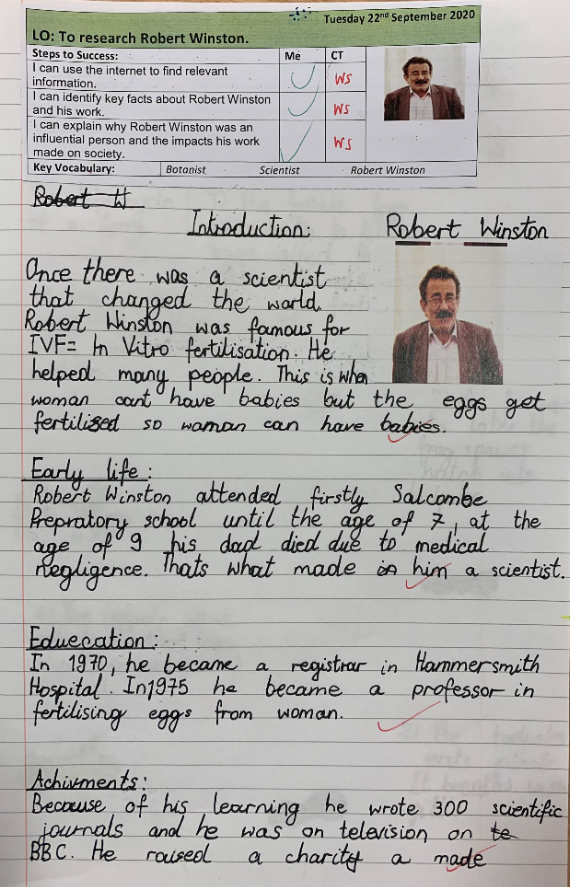 Tuesday 22nd September 2020
LO: To research Robert Winston.
Steps to Success: Me CT
I can use the internet to find relevant
information. WS
I can identify key facts about Robert Winston
and his work. WS
I can explain why Robert Winston was an
influential person and the impacts his work
made on society. WS
Key Vocabulary: Botanist Scientist Robert Winston
Robert W
Introduction: Robert Winston
Once there was a scientist
that changed the world.
Robert Winston was famous for
IVF= In Vitro fertilisation. He
helped many people. This is when
woman cant have babies but the eggs get
fertilised so woman can have babies.
Early life:
Robert Winston attended firstly Salcombe
Prepratory school until the age of 7, at the
age of 9 his dad died due to medical
negligence. Thats what made in him a scientist.
Eduecation:
In 1970, he became a registrar in Hammersmith
Hospital. In 1975 he became a professor in
fertilising eggs from woman.
Achivments:
Because of his learning he wrote 300 scientific
journals and he was on television on te
BBC. He raised a charity a made